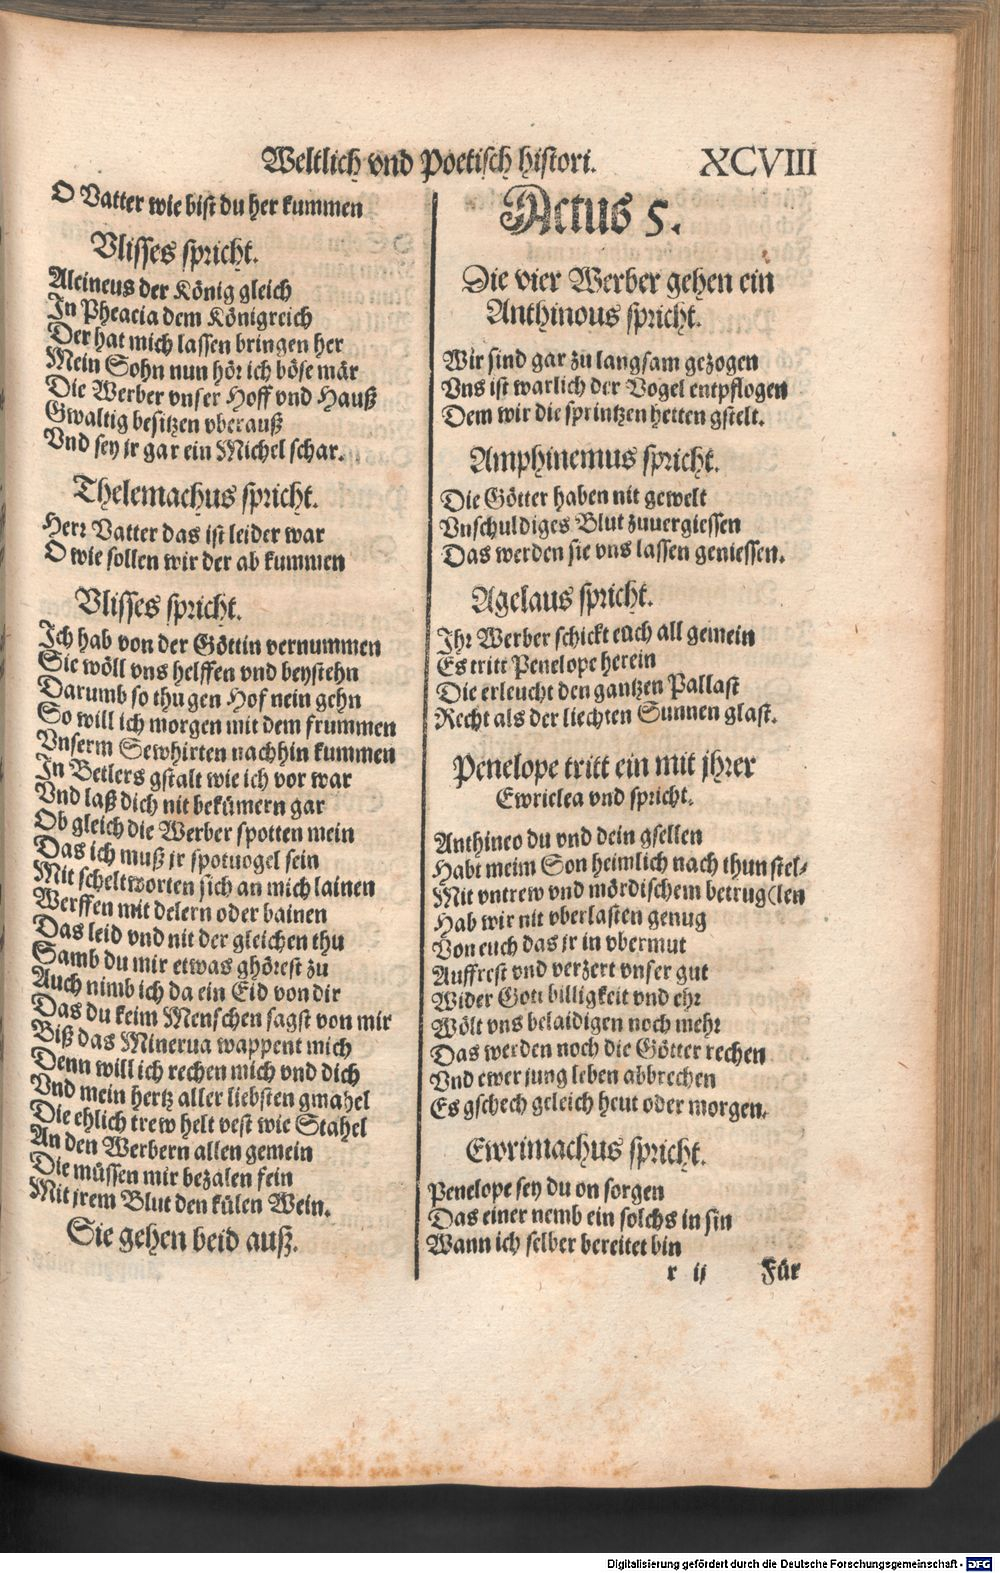 Weltlich vnd Poetisch histori. XCVIII
O Vatter wie bist du her kummen
Vlisses spricht.
Alcineus der König gleich
In Pheacia dem Königreich
Der hat mich lassen bringen her
Mein Sohn nun hör ich böse mär
Die Werber vnser Hoff vnd Hauß
Gwaltig besitzen vberauß
Vnd sey jr gar ein Michel schar.
Thelemachus spricht.
Herr Vatter das ist leider war
O wie sollen wir der ab kummen
Vlisses spricht.
Ich hab von der Göttin vernummen
Sie wöll vns helffen vnd beystehn
Darumb so thu gen Hof nein gehn
So will ich morgen mit dem frummen
Vnserm Sewhirten nachhin kummen
In Betlers gstalt wie ich vor war
Vnd laß dich nit bekümern gar
Ob gleich die Werber spotten mein
Das ich muß jr spotuogel sein
Mit scheltworten sich an mich lainen
Werffen mit delern oder bainen
Das leid vnd nit der gleichen thu
Samb du mir etwas ghörest zu
Auch nimb ich da ein Eid von dir
Das du keim Menschen sagst von mir
Biß das Minerua wappent mich
Denn will ich rechen mich vnd dich
Vnd mein hertz aller liebsten gmahel
Die ehlich trew helt vest wie Stahel
An den Werbern allen gemein
Die müssen mir bezalen fein
Mit jrem Blut den külen Wein.
Sie gehen beid auß.
Actus 5.
Die vier Werber gehen ein
Anthinous spricht.
Wir sind gar zu langsam gezogen
Vns ist warlich der Vogel entpflogen
Dem wir die sprintzen hetten gstelt.
Amphinemus spricht.
Die Götter haben nit gewelt
Vnschuldiges Blut zuuergiessen
Das werden sie vns lassen geniessen.
Agelaus spricht.
Ihr Werber schickt euch all gemein
Es tritt Penelope herein
Die erleucht den gantzen Pallast
Recht als der liechten Sunnen glast.
Penelope tritt ein mit jhrer
Ewriclea vnd spricht.
Anthineo du vnd dein gsellen
Habt meim Son heimlich nach thun stel-
Mit vntrew vnd mördischem betrug (len
Hab wir nit vberlasten genug
Von euch das jr in vbermut
Auffrest vnd verzert vnser gut
Wider Gott billigkeit vnd ehr
Wölt vns belaidigen noch mehr
Das werden noch die Götter rechen
Vnd ewer jung leben abbrechen
Es gschech geleich heut oder morgen.
Ewrimachus spricht.
Penelope sey du on sorgen
Das einer nemb ein solchs in sin
Wann ich selber bereitet bin
r ij Für
Digitalisierung gefördert durch die Deutsche Forschungsgemeinschaft - DFG